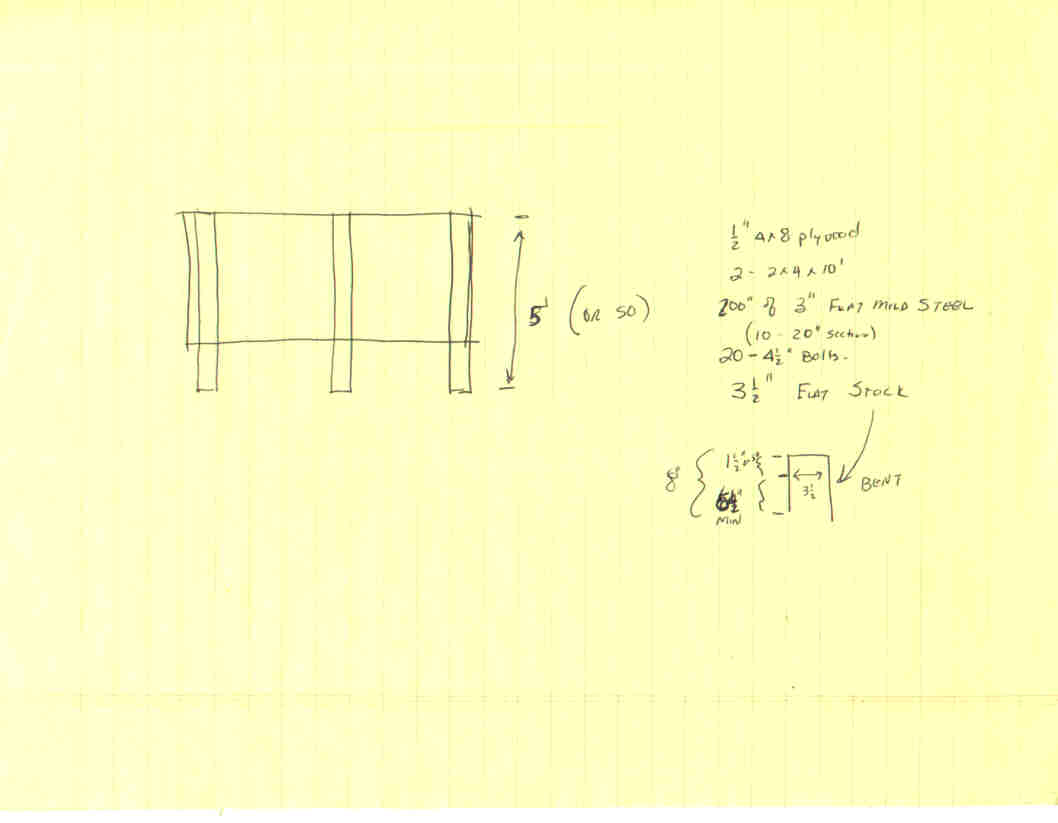 5' (OR SO)
1/2" 4x8 plywood
2 - 2x4x10'
200" of 3" FLAT MILD STEEL
(10 - 20" section)
20 - 4 1/2" Bolts.
3 1/2" FLAT STOCK
8" 1 1/2"
3 1/2 BENT
MIN